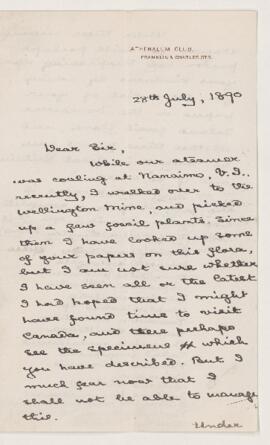 ATHENAEUM CLUB.
FRANKLIN & CHARLES STS.
28th July, 1890
Dear Sir,
While our steamer
was coaling at Nanaimo, V. I.,
recently, I walked over to the
Wellington mine, and picked
up a few fossil plants. Since
then I have looked up some
of your papers on this flora,
but I am not sure whether
I have seen all or the latest
I had hoped that I might
have found time to visit
Canada, and there perhaps
see the specimens which
you have described. But I
much fear now that I
shall not be able to manage
this.
Under